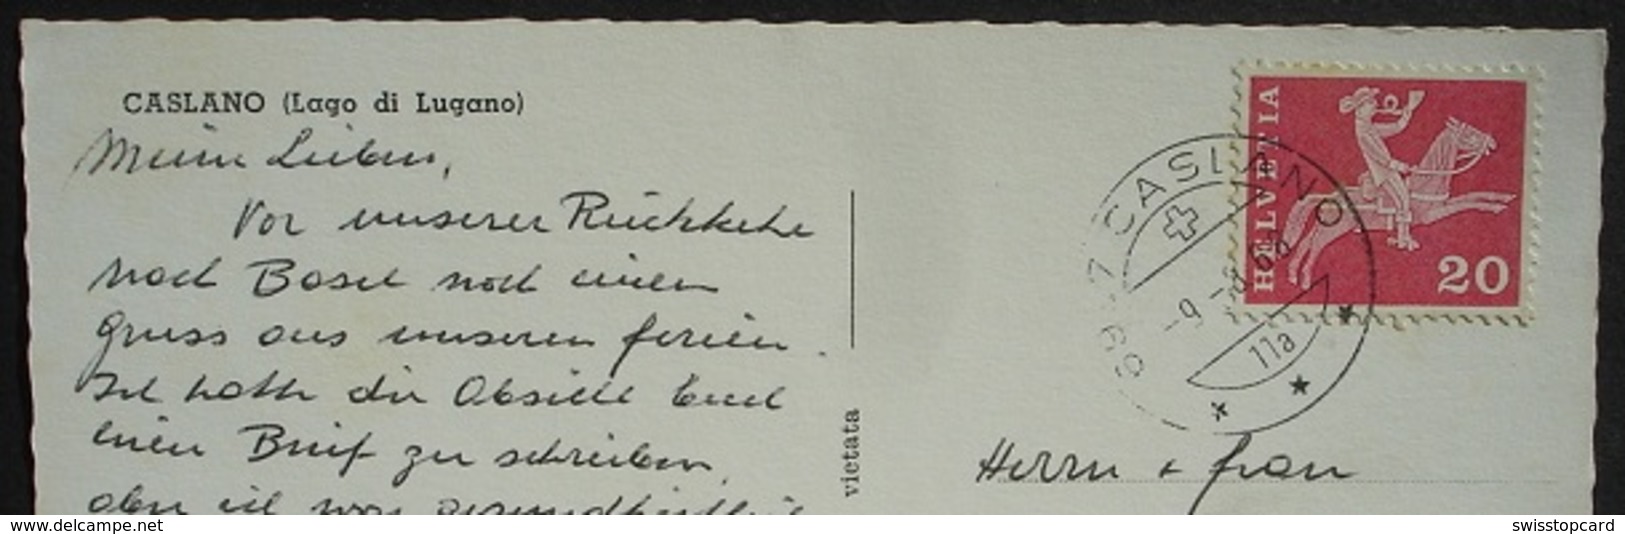 CASLANO (Lago di Lugano)
Meine Lieben,
Vor unserer Rückkehr
nach Basel noch einen
Gruss aus unseren Ferien.
Ich hatte die Absicht Euch
einen Brief zu schreiben,
aber ich war gesundheitlich
vietata
HELVETIA
20
CASLANO
-9.-
11a
Herrn + Frau
www.delcampe.net
swisstopcard